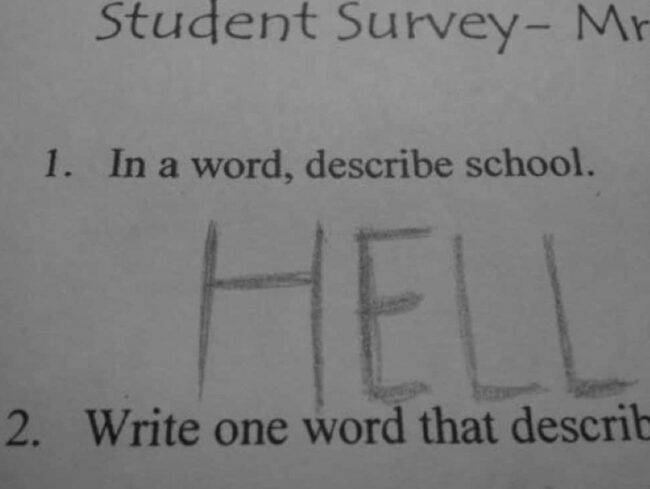 Student Survey- Mr
1. In a word, describe school.
HELL
2. Write one word that describ